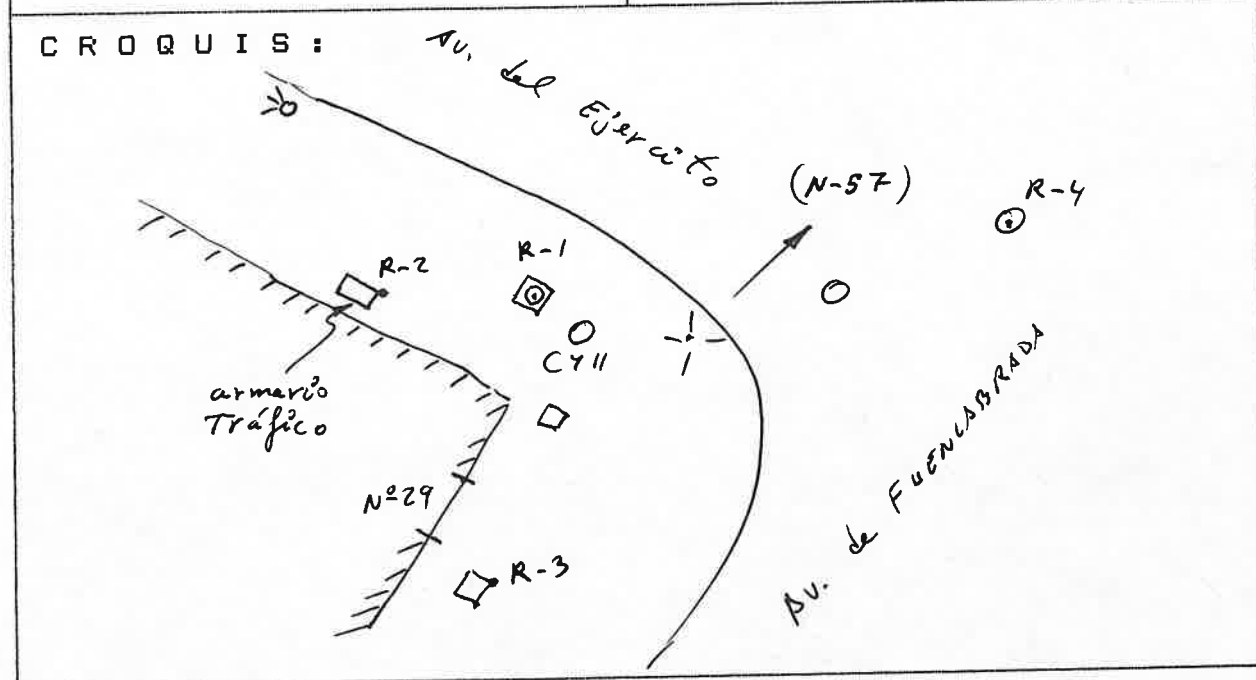 CROQUIS:
Av. del Ejército
(N-57)
R-4
R-1
R-2
CYII
armario
Tráfico
Nº29
R-3
Av. de FUENLABRADA